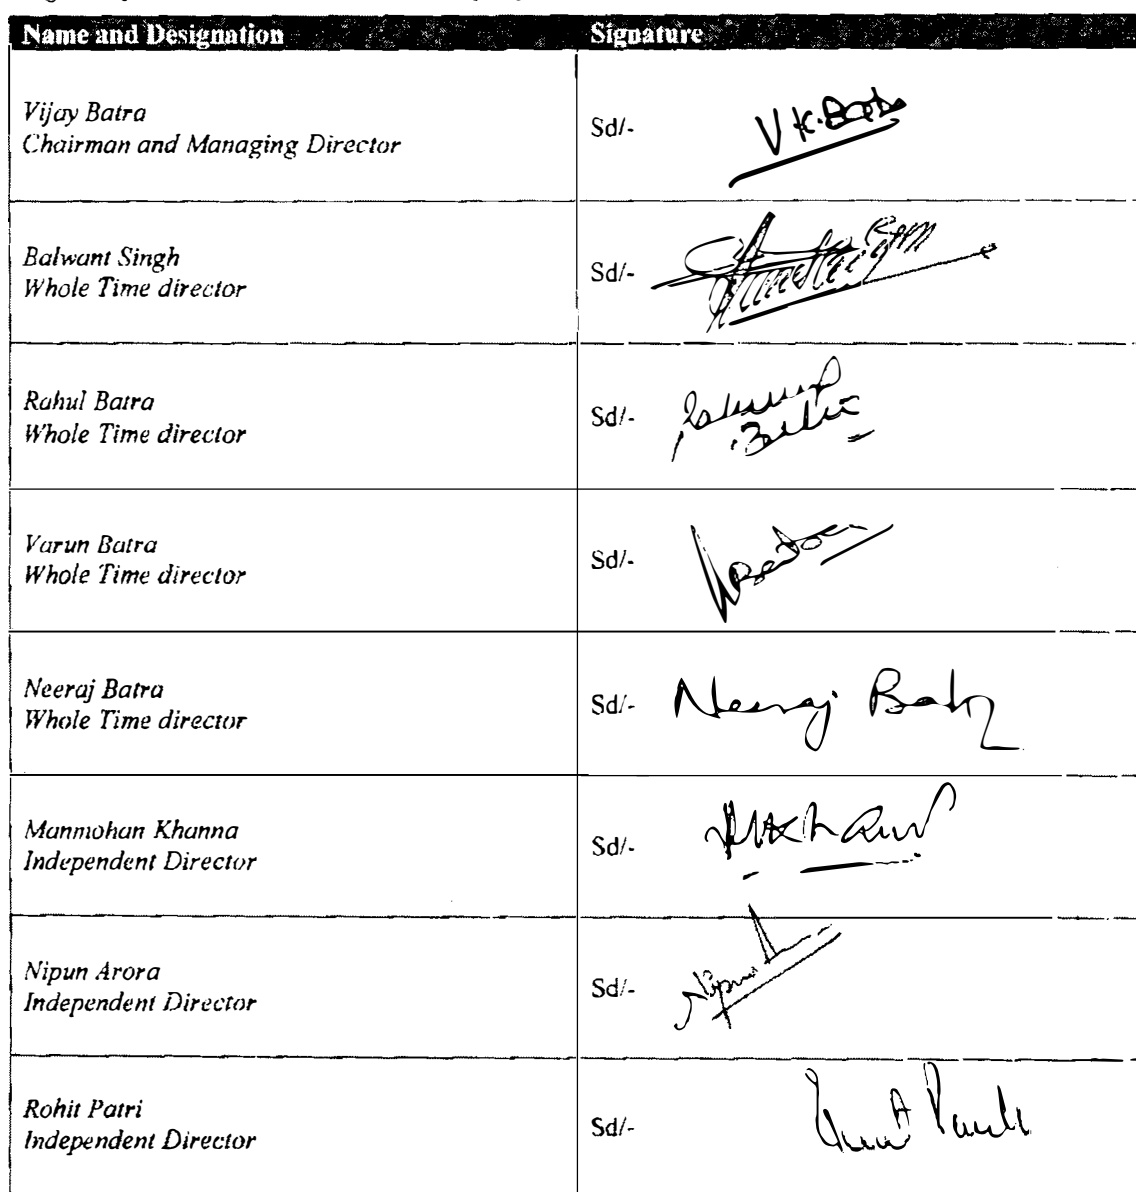 Name and Designation Signature
Vijay Batra
Chairman and Managing Director
Sd/- V K. Batra
Balwant Singh
Whole Time director
Sd/-
Rahul Batra
Whole Time director
Sd/- Rahul
Batra
Varun Batra
Whole Time director
Sd/-
Neeraj Batra
Whole Time director
Sd/- Neeraj Batra
Manmohan Khanna
Independent Director
Sd/-
Nipun Arora
Independent Director
Sd/- Nipun
Rohit Patri
Independent Director
Sd/-